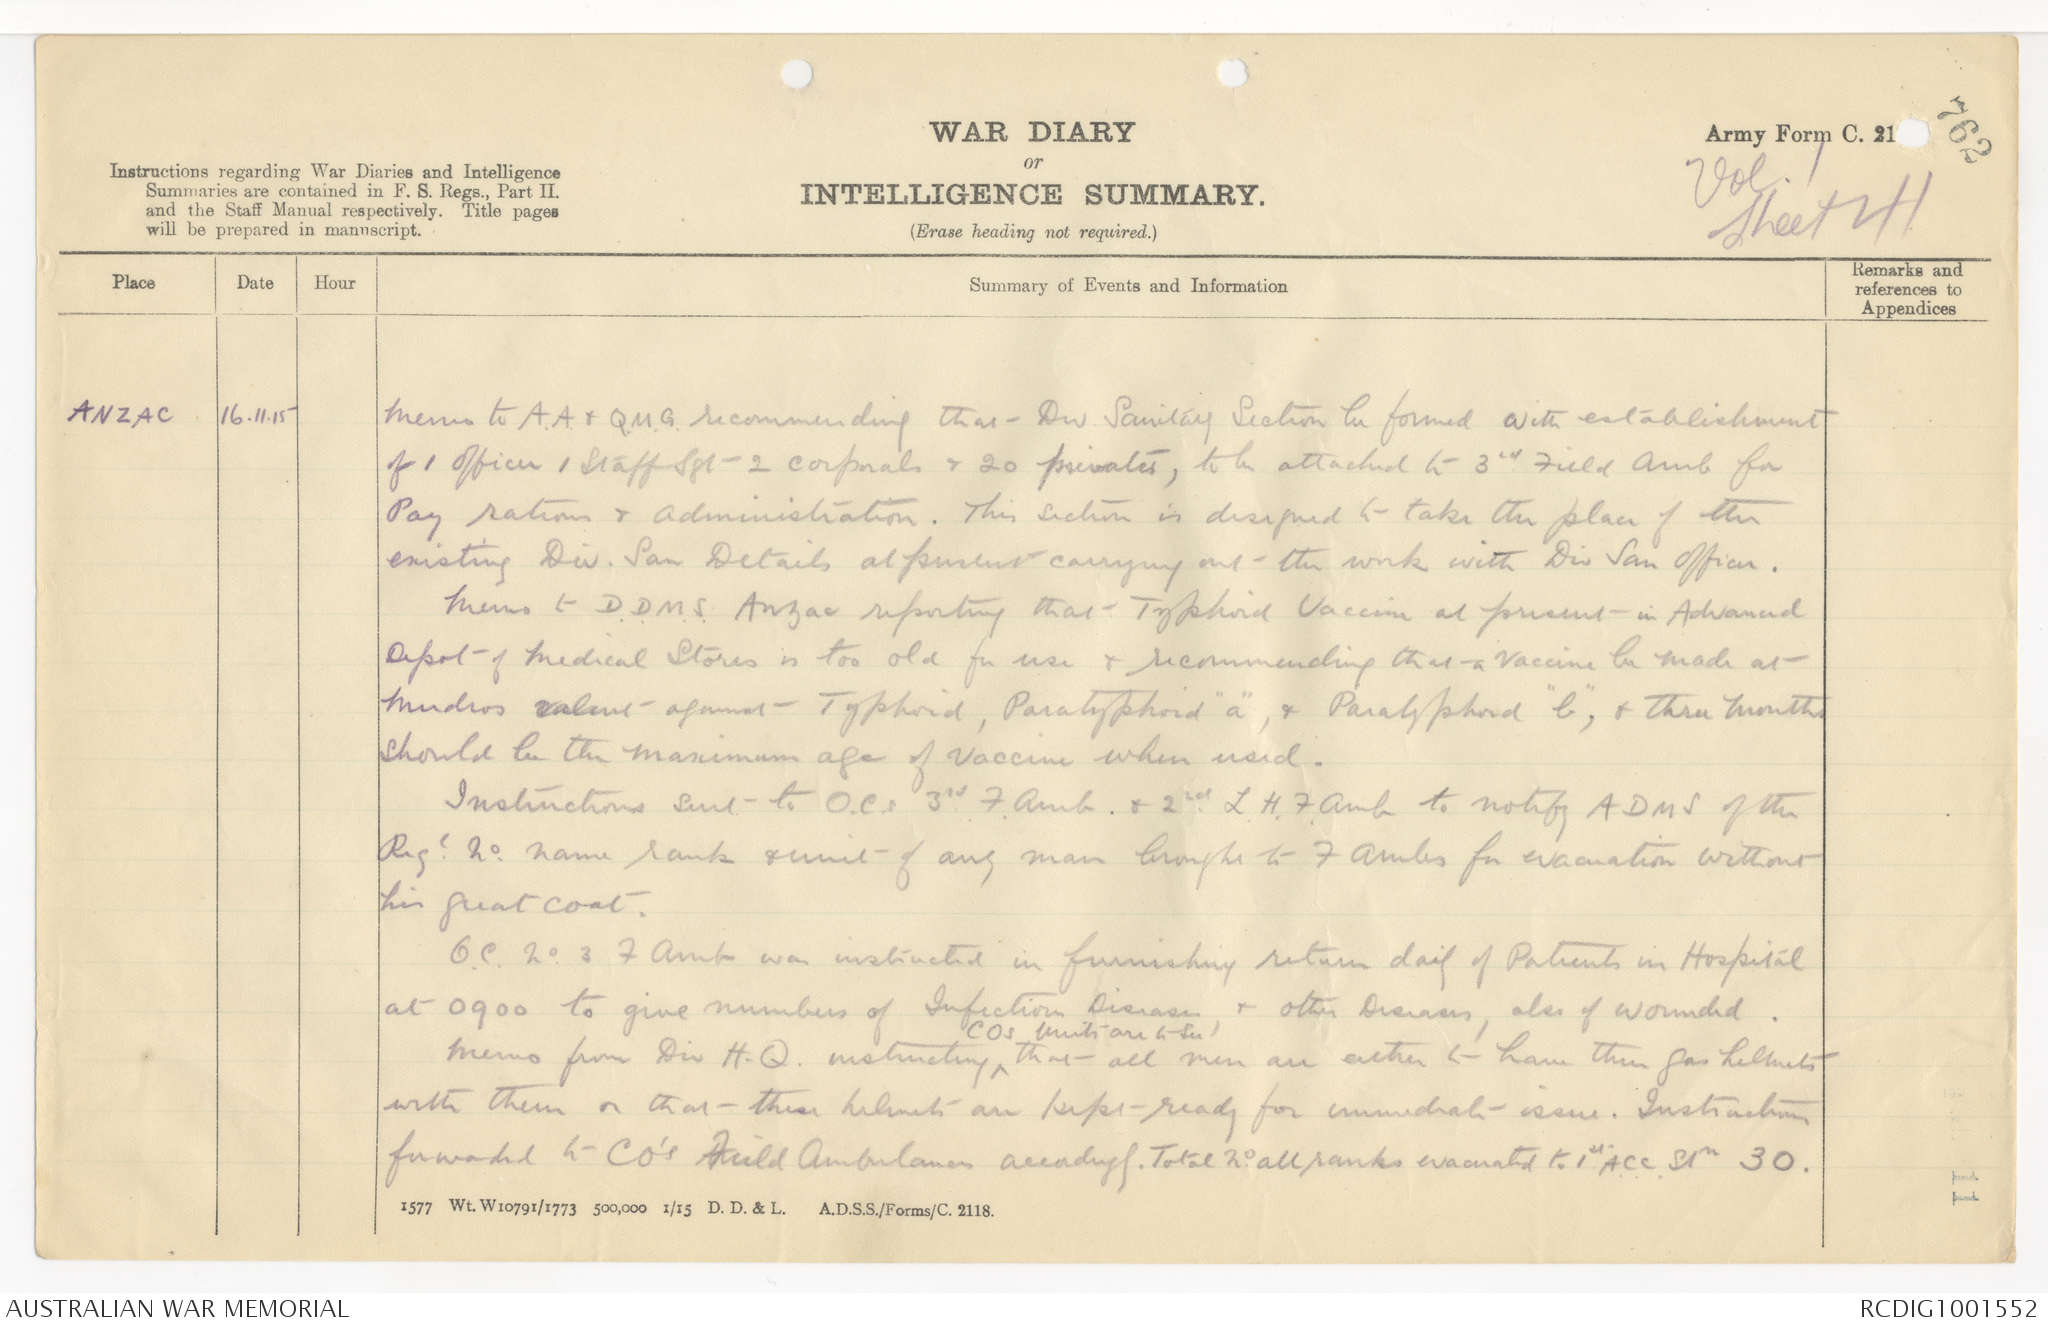 WAR DIARY
or
INTELLIGENCE SUMMARY.
(Erase heading not required.)
Instructions regarding War Diaries and Intelligence
Summaries are contained in F. S. Regs., Part II.
and the Staff Manual respectively. Title pages
will be prepared in manuscript.
Army Form C. 21
762
Vol. 1
Sheet 41
Place
Date
Hour
Summary of Events and Information
Remarks and
references to
Appendices
ANZAC
16.11.15
Memo to A.A & Q.M.G. recommending that Div Sanitary Section be formed with establishment
of 1 Officer 1 Staff Sgt 2 corporals & 20 privates, to be attached to 3rd Field Amb for
Pay rations & administration. This section is designed to take the place of the
existing Div. San Details at present carrying out the work with Div San Officer.
Memo to D.D.M.S. Anzac reporting that Typhoid Vaccine at present in Advanced
Depot of Medical Stores is too old for use & recommending that a vaccine be made at
Mudros valent against Typhoid, Paratyphoid "a", & Paratyphoid "b", & three months
should be the maximum age of vaccine when used.
Instructions sent to O.C.s 3rd F. Amb. & 2nd L.H.F. Amb to notify ADMS of the
Regl. No. name rank & unit of any man brought to F Ambs for evacuation without
his great coat.
O.C. No. 3 F Amb was instructed in furnishing return daily of Patients in Hospital
at 0900 to give numbers of Infectious Diseases & other Diseases, also of wounded.
COs Units are to see
Memo from Div H.Q. instructing ^ that all men are either to have their gas helmets
with them or that these helmets are kept ready for immediate issue. Instructions
forwarded to CO's Field Ambulances accordingly. Total No all ranks evacuated to 1st A.C.C. Stn 30.
1577 Wt. W10791/1773 500,000 1/15 D. D. & L. A.D.S.S./Forms/C. 2118.
AUSTRALIAN WAR MEMORIAL
RCDIG1001552